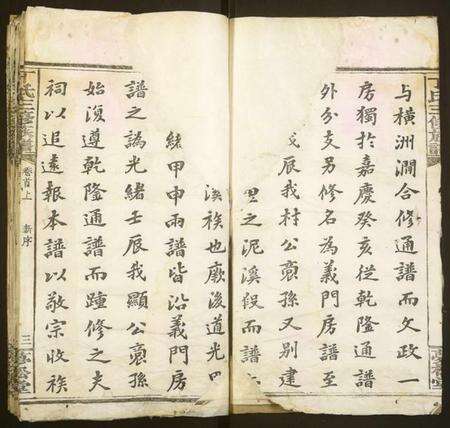 與橫洲澗合修通譜而文政一
房獨於嘉慶癸亥從乾隆通譜
外分支另修名為義門房譜至
戊辰我村公裔孫又別建
之泥溪叚而譜
溪族也厥後道光
緒甲申兩譜皆沿義門房
譜之譌光緒壬辰我顯公裔孫
始復遵乾隆通譜而踵修之夫
祠以追遠報本譜以敬宗收族
丁氏三修族譜
卷首上
新序
三